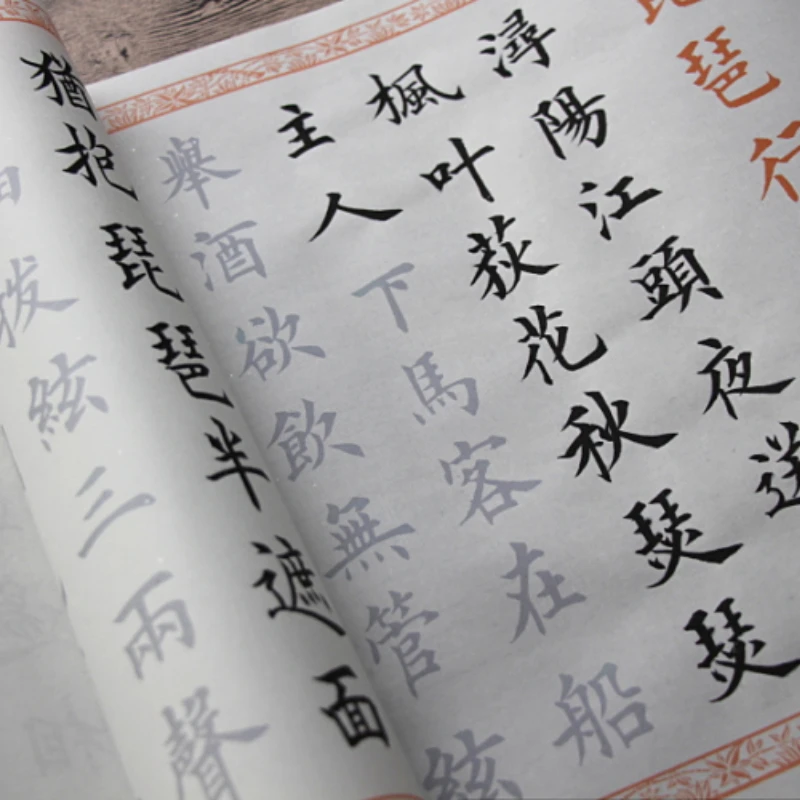 琶行
潯陽江頭夜送
楓叶荻花秋瑟瑟
主人下馬客在船
舉酒欲飲無管絃
猶抱琵琶半遮面
拨絃三兩聲